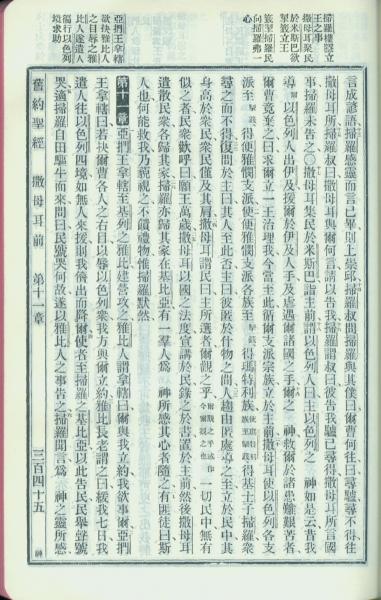 撒母耳聚民
於米斯巴欲
掣籤立王
掣籤至掃羅民
向掃羅弗一
心
言成諺語掃羅感靈而言已畢則上崇邱掃羅叔問掃羅與其僕曰爾曹何往曰尋驢尋不得往
撒母耳所掃羅叔曰撒母耳與爾何言請以告我掃羅謂叔曰彼告我驢已尋得撒母耳所言國
事掃羅未告之〇撒母耳集民於米斯巴詣主前謂以色列人曰主以色列之 神如是云昔我
導以色列人出伊及援爾於伊及人手及虐遇爾諸國之手爾之 神救爾於諸患難艱苦者
爾曹竟棄之曰求爾立一王治理我今當至此循爾支派宗族立於主前撒母耳使以色列各支
派至掣籤得便雅憫支派使便雅憫支派各族至掣籤得瑪特利族使瑪特利族至掣籤得基士子掃羅衆
尋之而不得復問於主曰其人至此否主曰彼匿於什物之間人趨由匿處導之至立於民中其
身高於衆民衆民僅及其肩撒母耳謂民曰主所選者爾觀之乎一切民中無有
似之者民衆歡呼曰願王萬歲撒母耳以國之法度宣講於民錄之於書置於主前然後撒母耳
遣散民衆各歸其家掃羅亦歸其家在基比亞有一羣人爲 神所感其心者隨之有匪徒曰斯
人也何能救我乃藐視之不饋禮物惟掃羅默然
亞捫王拿轄
欲抉雅比人
之目辱之雅
比人遂遣人
徧行以色列
境求助
第十一章 亞捫王拿轄至基列之雅比建營攻之雅比人謂拿轄曰爾與我立約我欲事爾亞捫
王拿轄曰若抉爾曹各人之右目以辱以色列衆我方與爾立約雅比長老謂之曰緩我七日我
遣人往以色列四境如無人來援則我儕出而降爾使者至掃羅之基比亞以此告民民舉聲號
哭適掃羅自田驅牛而來問曰民號哭何故遂以雅比人之事告之掃羅聞言爲 神之靈所感
舊約聖經 撒母耳前 第十一章 三百四十五 神